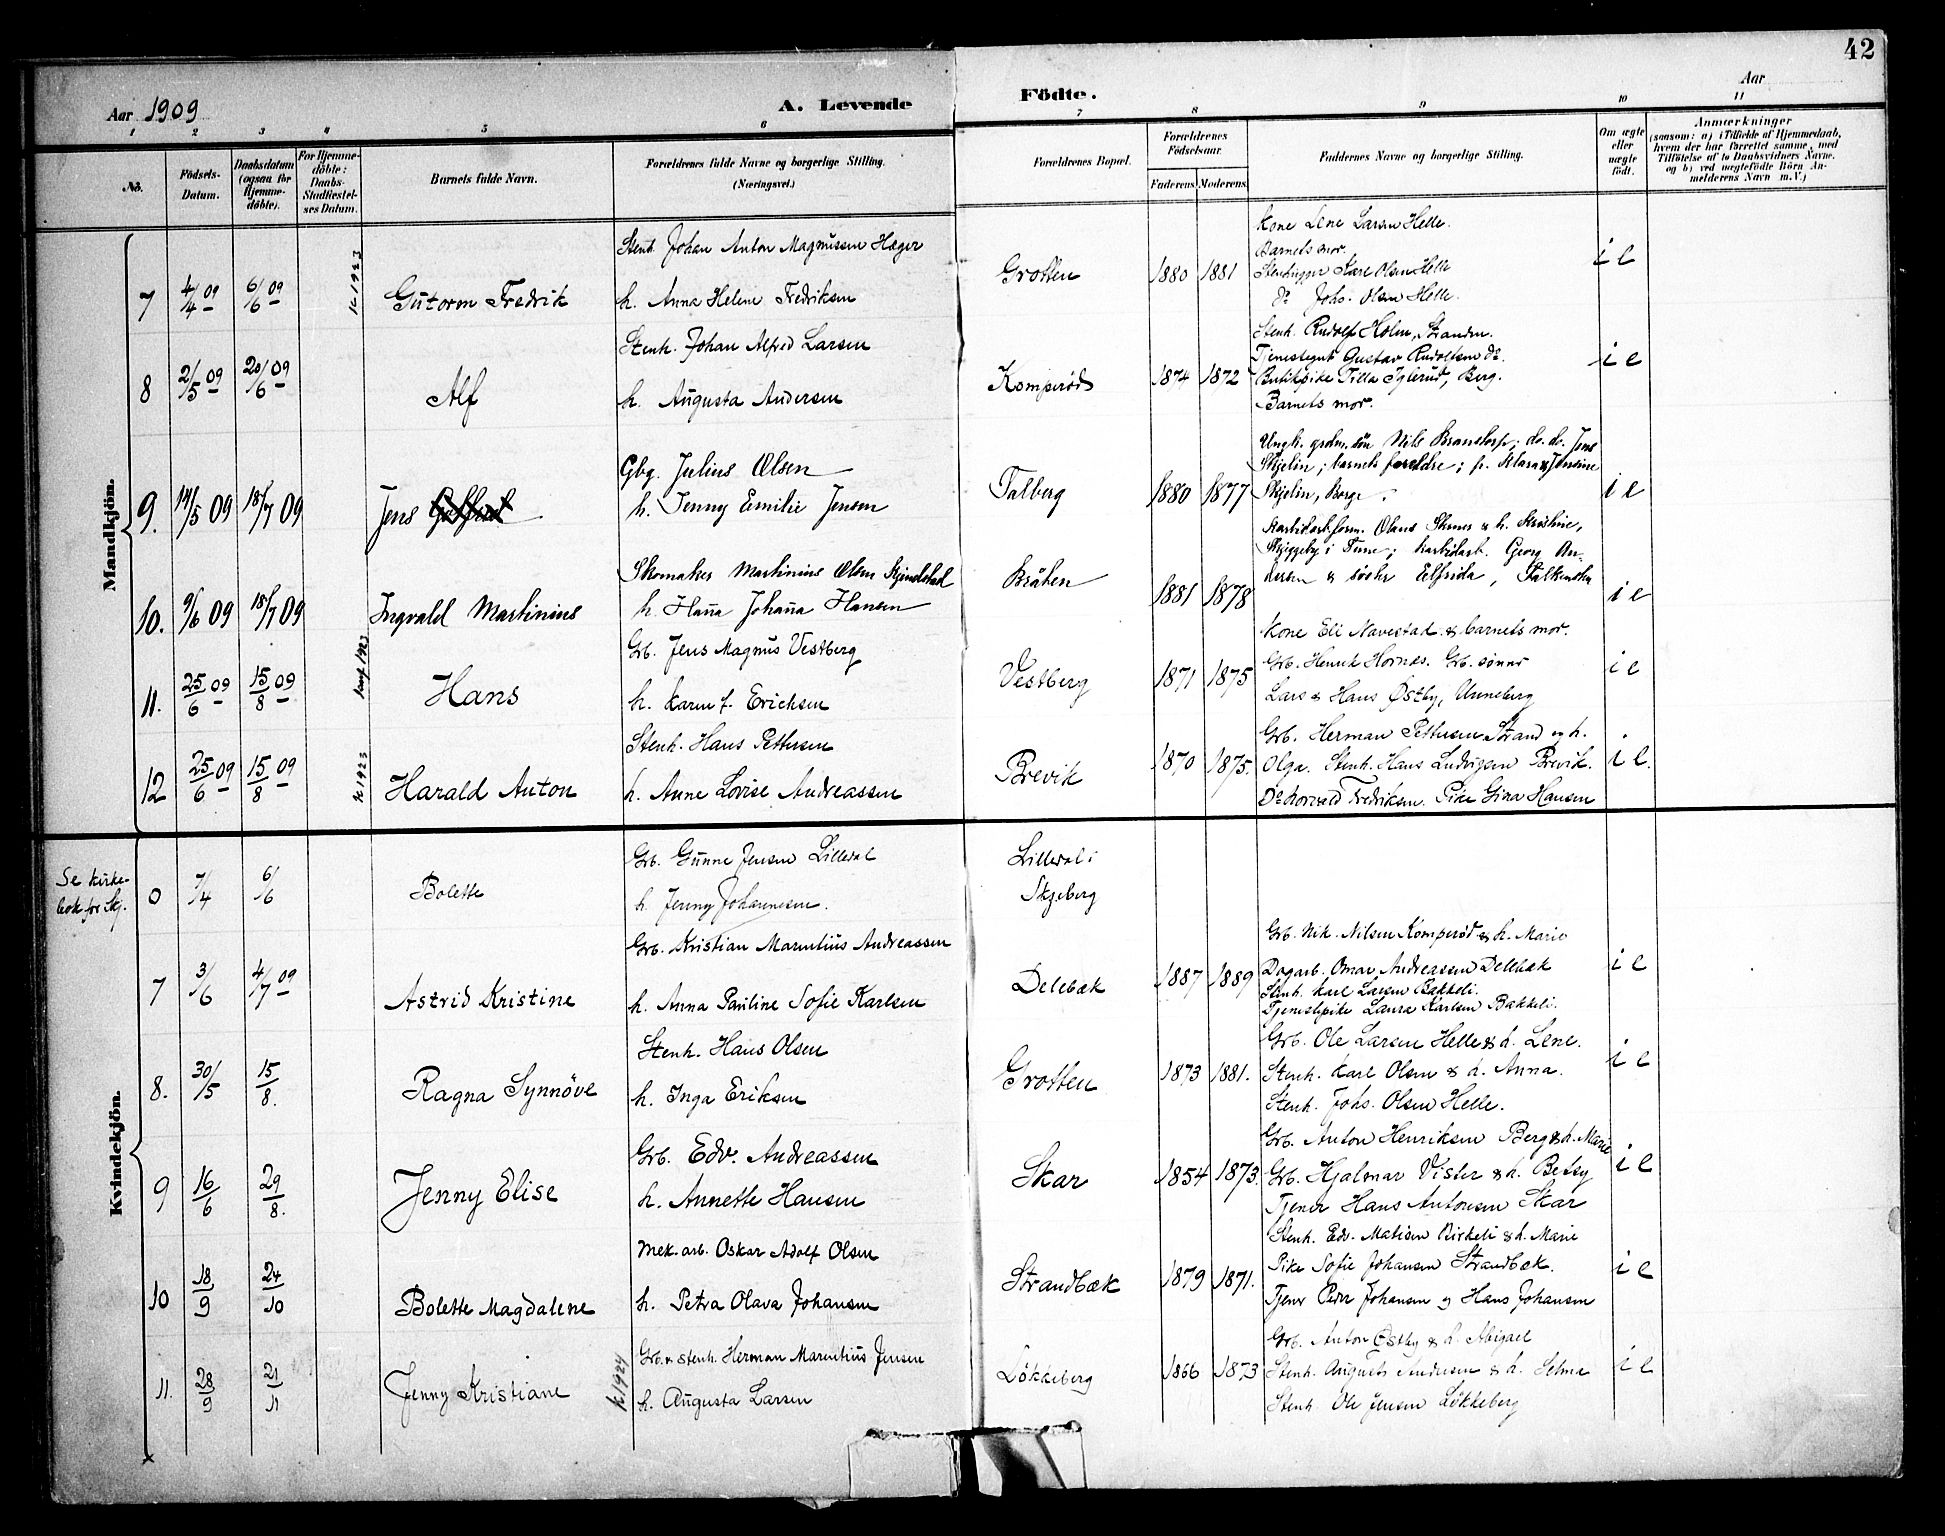 42
Aar 1909
A. Levende
Födte.
Aar
1 2 3 4 5 6 7 8 9 10 11
No.
Födsels-
Datum.
Daabsdatum
(ogsaa for
Hjemme-
döbte).
For Hjemme-
döbte:
Daabs-
Stadfæstel-
ses Datum.
Barnets fulde Navn.
Forældrenes fulde Navne og borgerlige Stilling.
(Næringsvei.)
Forældrenes Bopæl.
Forældrenes
Födselsaar.
Faderens Moderens
Faddernes Navne og borgerlige Stilling.
Om ægte
eller
uægte
födt.
Anmærkninger
(saasom: a) i Tilfælde af Hjemmedaab,
hvem der har forrettet samme, med
Tilföielse af to Daabsvidners Navne.
og b) ved uægtefödte Börn An-
melderens Navn m.V.)
Mandkjön.
7 4/4 09 6/6 09 k 1923 Gutorm Fredrik
Stenh. Johan Anton Magnussen Hæger
h. Anna Helene Fredriksen
Grotten 1880 1881
Kone Lene Larsen Helle.
Barnets mor.
Stenhugger Karl Olsen Helle
do Johs. Olsen Helle.
i e
8 2/5 09 20/6 09 Alf
Stenh. Johan Alfred Larsen
h. Augusta Andersen
Komperød 1874 1872
Stenh. Rudolf Holm, Stranden.
Tjenestegut Gustav Rudolfsen do.
Butikpike Tilla Iglerud, Berg.
Barnets mor.
i e
9. 14/5 09 18/7 09 Jens
Gbg. Julius Olsen
h. Jenny Emilie Jensen
Talberg 1880 1877
Ungk. grdm. søn Nils Brandorp; do. do. Jens
Skjelin; barnets foreldre; p. Klara & Jensine
Skjelin, Borge.
i e
10. 9/6 09 18/7 09 Ingvald Martinius
Skomaker Martinius Olsen Kjindstad
h. Hanna Johanna Hansen
Bråten 1881 1878
Karbidarb.form. Olaus Skaner & h. Kristine,
Skjeggeby i Tune; karbidarb. Georg An-
dersen & søster Elfrida, Falkensten
i e
11. 25/6 09 15/8 09 konf 1923 Hans
Grb. Jens Magnus Vestberg
h. Karen f. Erichsen
Vestberg 1871 1875
Kone Eli Navestad & barnets mor.
Grb. Henrik Hornæs. Grb. sønner
Lars & Hans Østby, Unneberg
i e
12 25/6 09 15/8 09 k 1923 Harald Anton
Stenh. Hans Pettersen
h. Anne Lovise Andreassen
Brevik 1870 1875.
Grb. Herman Pettersen Strand og h.
Olga. Stenh. Hans Ludvigsen Brevik.
Do Torvald Fredriksen. Pike Gina Hansen
i e.
Kvindekjön.
Se kirke-
bok for Skj.
0 7/4 6/6 Bolette
Grb. Gunne Jensen Lilledal
h. Jenny Johannesen.
Lilledal i
Skjeberg
7 3/6 4/7 09 Astrid Kristine
Grb. Kristian Marentius Andreassen
h. Anna Pauline Sofie Karlsen
Delebæk 1887 1889
Grb. Nik. Nilsen Komperød & h. Marie
Dagarb. Omar Andreassen Delebæk
Stenh. Karl Larsen Bakkeli.
Tjenestepike Laura Karlsen Bakkeli.
i e
8. 30/5 15/8. Ragna Synnöve
Stenh. Hans Olsen
h. Inga Eriksen
Grotten 1873 1881.
Grb. Ole Larsen Helle & h. Lene.
Stenh. Karl Olsen & h. Anna.
Stenh. Johs. Olsen Helle.
i e
9 16/6 29/8. Jenny Elise
Grb. Edv. Andreassen
h. Annette Hansen
Skar 1854 1873.
Grb. Anton Henriksen Berg & h. Marie
Grb. Hjalmar Vister & h. Betsy
Tjener Hans Antonsen Skar
i e
10 18/9 24/10 Bolette Magdalene
Mek. arb. Oskar Adolf Olsen
h. Petra Olava Johansen
Strandbæk 1879 1871.
Stenh. Edv. Matisen Birkeli & h. Marie
Pike Sofie Johansen Strandbæk.
Tjener Peder Johansen og Hans Johansen
i e
11. 28/9 21/11 Jenny Kristiane k. 1924
Grb. & stenh. Herman Marentius Jensen
h. Augusta Larsen
Løkkeberg 1866 1873
Grb. Anton Østby & h. Abigael
Stenh. August Andersen & h. Selma
Stenh. Ole Jensen Løkkeberg
i e